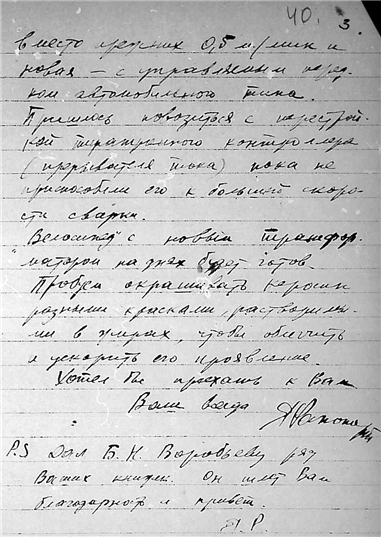 40. 3.
вместо прежних 0,5 м/мин и
новая — с управляемым перед-
ком автомобильного типа.
Пришлось повозиться с перестрой-
кой тиратронного контроллера
(прерывателя тока) пока не
приспособили его к большей скоро-
сти сварки.
Велосипед с новым трансфор-
матором на днях будет готов.
Пробуем окрашивать керосин
разными красками, растворимы-
ми в жирах, чтобы облегчить
и ускорить его проявление
Хотел бы приехать к Вам
Ваш всегда
P.S Дал Б. Н. Воробьеву ряд
Ваших книжек. Он шлет Вам
благодарность и привет.
Я. Р.